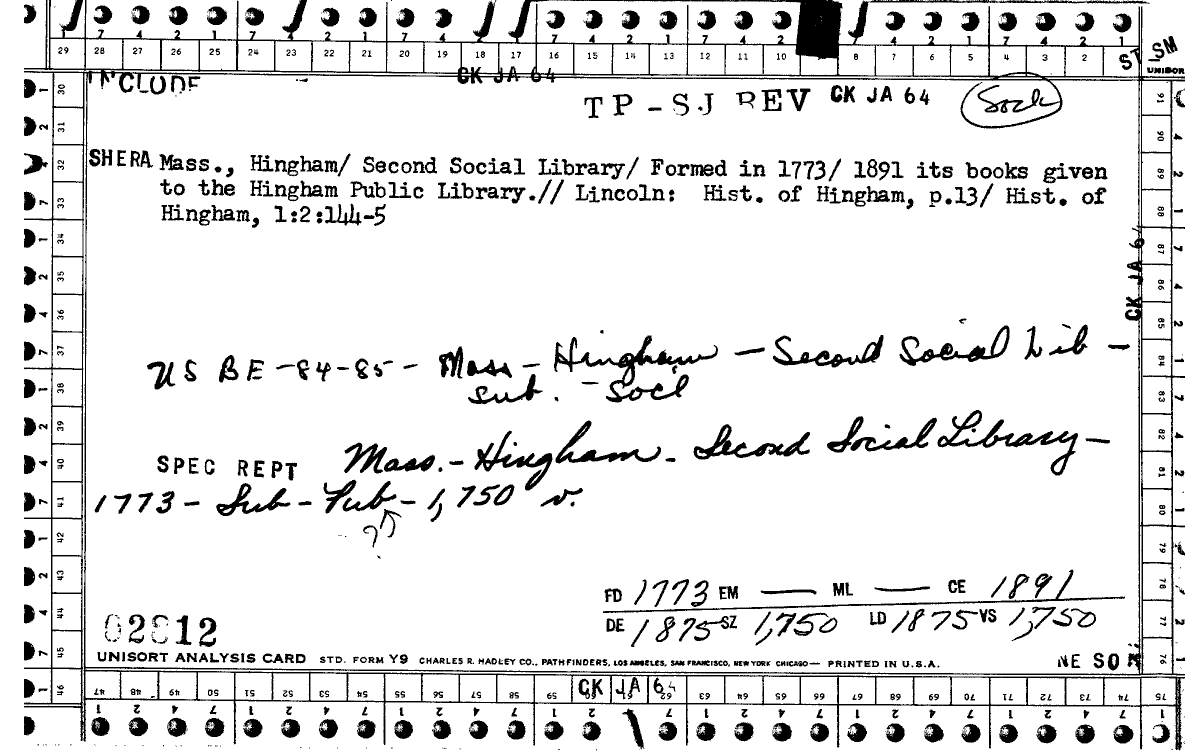 7 4 2 1 7 4 2 1 7 4 2 1 7 4 2 1 7 4 2 1 7 4 2 1
29 28 27 26 25 24 23 22 21 20 19 18 17 16 15 14 13 12 11 10 8 7 6 5 4 3 2 ST SM
UNISOR
INCLUDE CK JA 64
TP-SJ REV CK JA 64 Socl
SHERA Mass., Hingham/ Second Social Library/ Formed in 1773/ 1891 its books given
to the Hingham Public Library.// Lincoln: Hist. of Hingham, p.13/ Hist. of
Hingham, 1:2:144-5
CK JA 64
US BE -84-85- Mass - Hingham - Second Social Lib -
sub. - Socl
SPEC REPT Mass. - Hingham - Second Social Library -
1773 - Sub - Pub - 1,750 v.
?
FD 1773 EM — ML — CE 1891
DE 1875 SZ 1,750 LD 1875 VS 1,750
02812
UNISORT ANALYSIS CARD STD. FORM Y9 CHARLES R. HADLEY CO., PATHFINDERS, LOS ANGELES, SAN FRANCISCO, NEW YORK CHICAGO— PRINTED IN U.S.A.
NE SO
CK JA 64
47 48 49 50 51 52 53 54 55 56 57 58 59 61 63 64 65 66 67 68 69 70 71 72 73 74 75